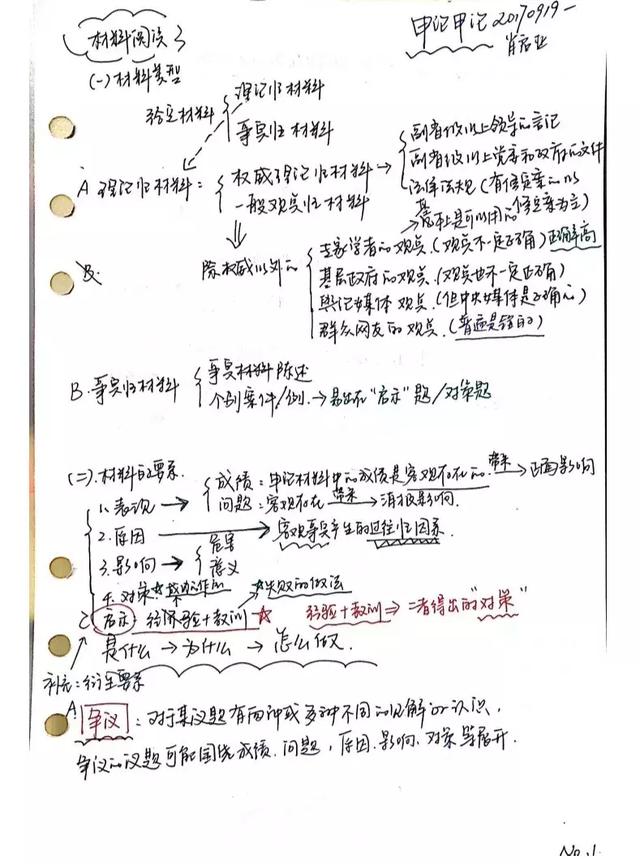 材料阅读
申论申论 20170919-
肖启业
(一)材料类型
给定材料 { 理论性材料
事实性材料
A 理论性材料: { 权威理论性材料 → 副省级以上领导的言论
副省级以上党委和政府的文件
法律法规(有修正案的以
修正案为主)
基本上是可以用的
一般观点性材料
除权威以外的 { 专家学者的观点.(观点不一定正确)正确率高
基层政府的观点.(观点也不一定正确)
舆论媒体观点.(但中央媒体是正确的)
群众网友的观点.(普遍是错的)
B.
B.事实性材料 { 事实材料陈述
个别案件/例.→易出在"启示"题/对策题
(二).材料的要素.
1.表现 → { 成绩:申论材料中的成绩是客观存在的.带来→正面影响
问题:客观存在 带来→消极影响.
2.原因 → 客观事实产生的过往性因素.
3.影响 → { 危害
意义
4.对策☆成功作法 ☆失败的做法
启示:经济 经验+教训☆ 经验+教训 ⇒ 二者得出的"对策"
是什么 → 为什么 → 怎么做.
补充:衍生要素
A.争议:对于某议题有两种或多种不同的见解或认识.
争议的议题可能围绕成绩.问题,原因.影响.对策等展开.
No.1.